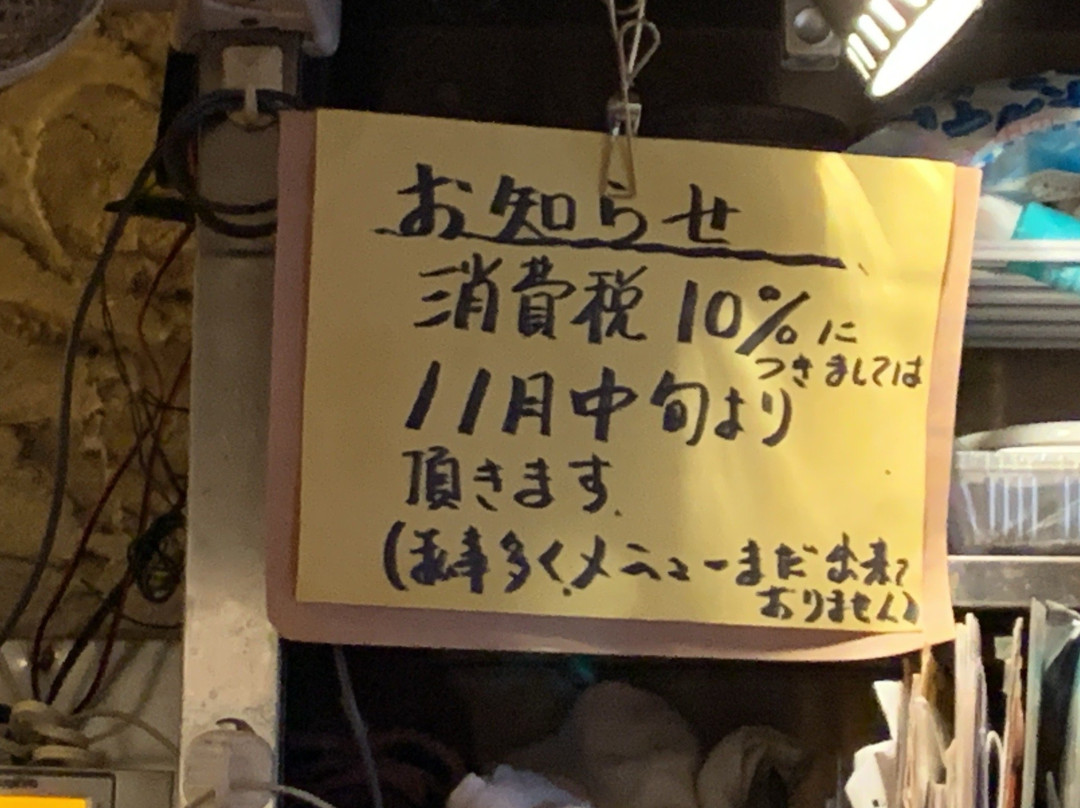 お知らせ
消費税10%に
つきましては
11月中旬より
頂きます。
多く、メニューまだ出来て
おりません)